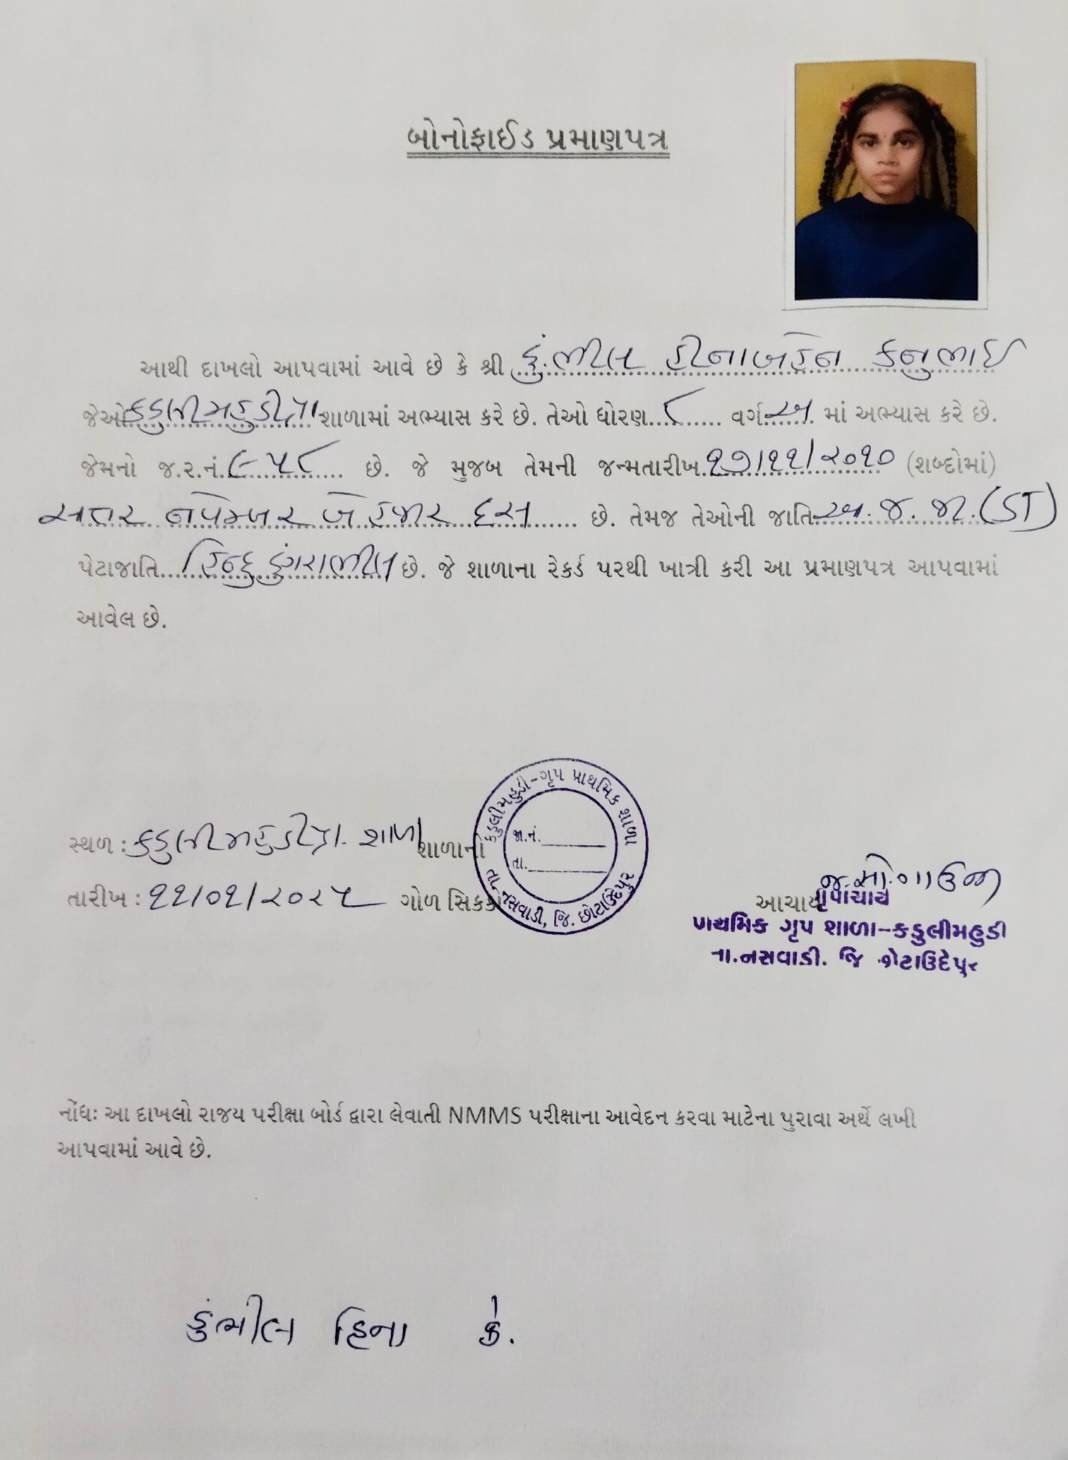 બોનોફાઈડ પ્રમાણપત્ર
આથી દાખલો આપવામાં આવે છે કે શ્રી ડું.ભીલ હીનાબહેન કનુભાઈ
જેઓ કડુલીમહુડી પ્રા શાળામાં અભ્યાસ કરે છે. તેઓ ધોરણ....૮....... વર્ગ..અ.. માં અભ્યાસ કરે છે.
જેમનો જ.ર.નં. ૯૫૮ .... છે. જે મુજબ તેમની જન્મતારીખ.૧૭/૧૧/૨૦૧૦ (શબ્દોમાં)
સત્તર નવેમ્બર બે હજાર દસ...... છે. તેમજ તેઓની જાતિ..અ.જ.જા.(ST)
પેટાજાતિ...હિન્દુ ડુંગરાભીલ છે. જે શાળાના રેકર્ડ પરથી ખાત્રી કરી આ પ્રમાણપત્ર આપવામાં
આવેલ છે.
સ્થળ : કડુલીમહુડી પ્રા. શાળા શાળાનો
તારીખ : ૧૧/૦૧/૨૦૨૫ ગોળ સિક્કો
કડુલીમહુડી-ગૃપ પ્રાથમિક શાળા
જા.નં.
તા.
તા. નસવાડી, જિ. છોટાઉદેપુર
આચાર્ય
પ્રાથમિક ગૃપ શાળા-કડુલીમહુડી
તા.નસવાડી. જિ છોટાઉદેપુર
નોંધઃ આ દાખલો રાજય પરીક્ષા બોર્ડ દ્વારા લેવાતી NMMS પરીક્ષાના આવેદન કરવા માટેના પુરાવા અર્થે લખી
આપવામાં આવે છે.
ડુંભીલ હિના કે.